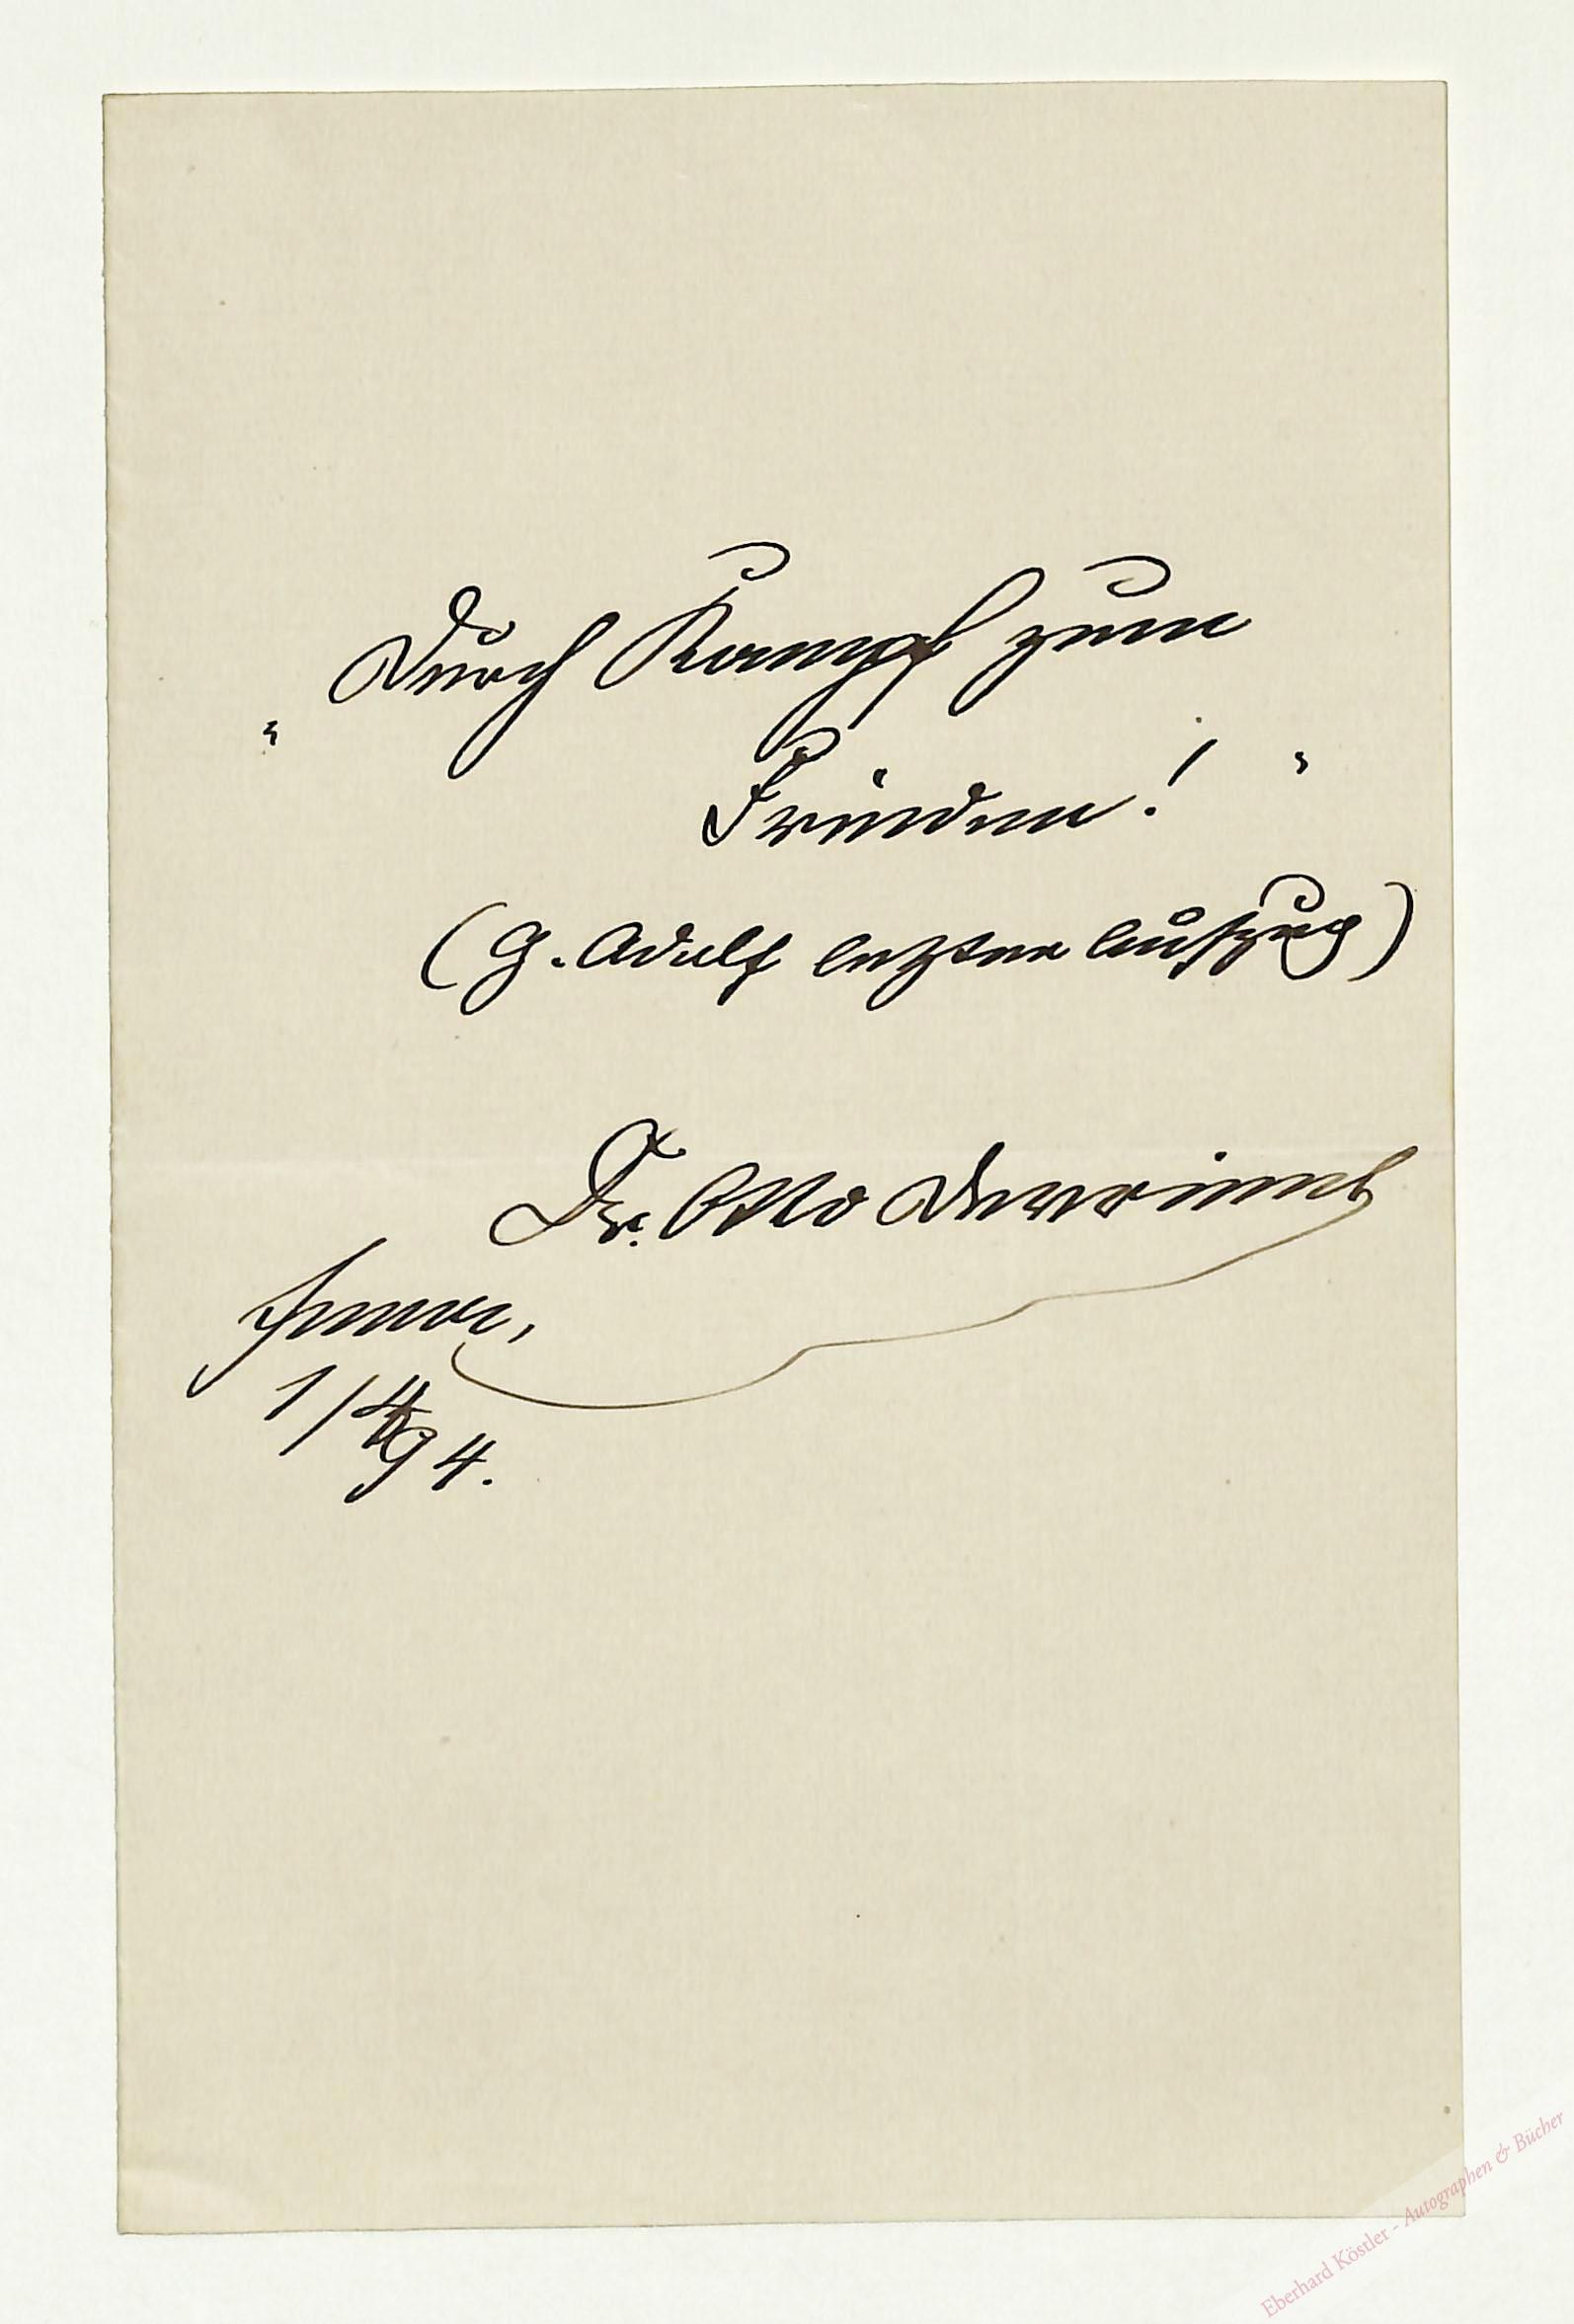 „Durch Kampf zum
Frieden!“
(G. Adolf letzter Aufzug)
Dr. Otto Devrient
Jena,
1/4 94.
Eberhard Köstler - Autographen & Bücher